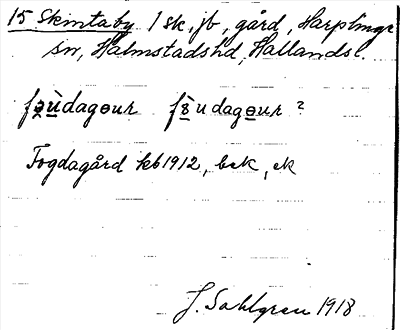 15 Skintaby 1 sk, jb, gård, Harplinge
sn, Halmstads hd, Hallands l.
Fogdagård kb 1912, bek, ek
J. Sahlgren 1918